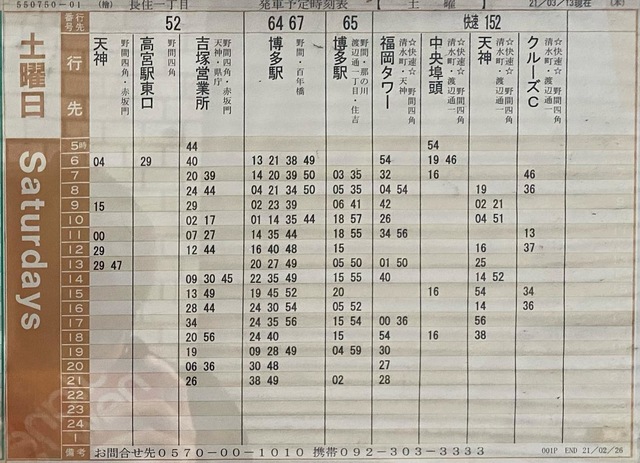 550750-(01) (檜) 長住一丁目 発車予定時刻表 【 土 曜 】 21/03/13現在 (木)
行先番号 52 64 67 65 快速 152
土曜日 Saturdays
行先
天神 野間四角・赤坂門
高宮駅東口 野間四角
吉塚営業所 野間四角・赤坂門 天神・県庁
博多駅 野間・百年橋
博多駅 野間・那の川 渡辺通一丁目・住吉
福岡タワー ☆快速☆ 野間四角 清水町・天神
中央埠頭 ☆快速☆ 野間四角 清水町・渡辺通一
天神 ☆快速☆ 野間四角 清水町・渡辺通一
クルーズC ☆快速☆ 野間四角 清水町・渡辺通一
5時 44 54
6 04 29 40 13 21 38 49 54 19 46
7 20 39 14 20 39 50 03 35 32 16 46
8 24 44 04 21 34 50 05 35 04 54 19 36
9 15 29 02 23 39 06 41 42 02 21
10 02 17 01 14 35 44 18 57 26 04 51
11 00 07 27 14 35 44 18 55 34 56 13
12 29 12 44 16 40 48 15 16 37
13 29 47 20 27 49 05 50 01 50 25
14 09 30 45 22 35 49 15 55 40 14 52
15 13 49 19 45 52 20 16 54 34
16 28 44 24 30 54 05 52 14 36
17 34 24 35 56 15 54 00 36 56
18 20 56 24 40 15 54 16 38
19 19 09 28 49 04 59 30
20 06 36 30 48 27
21 26 38 49 02 28
22
23
24
1
備考 お問合せ先0570-00-1010 携帯092-303-3333 001P END 21/02/26